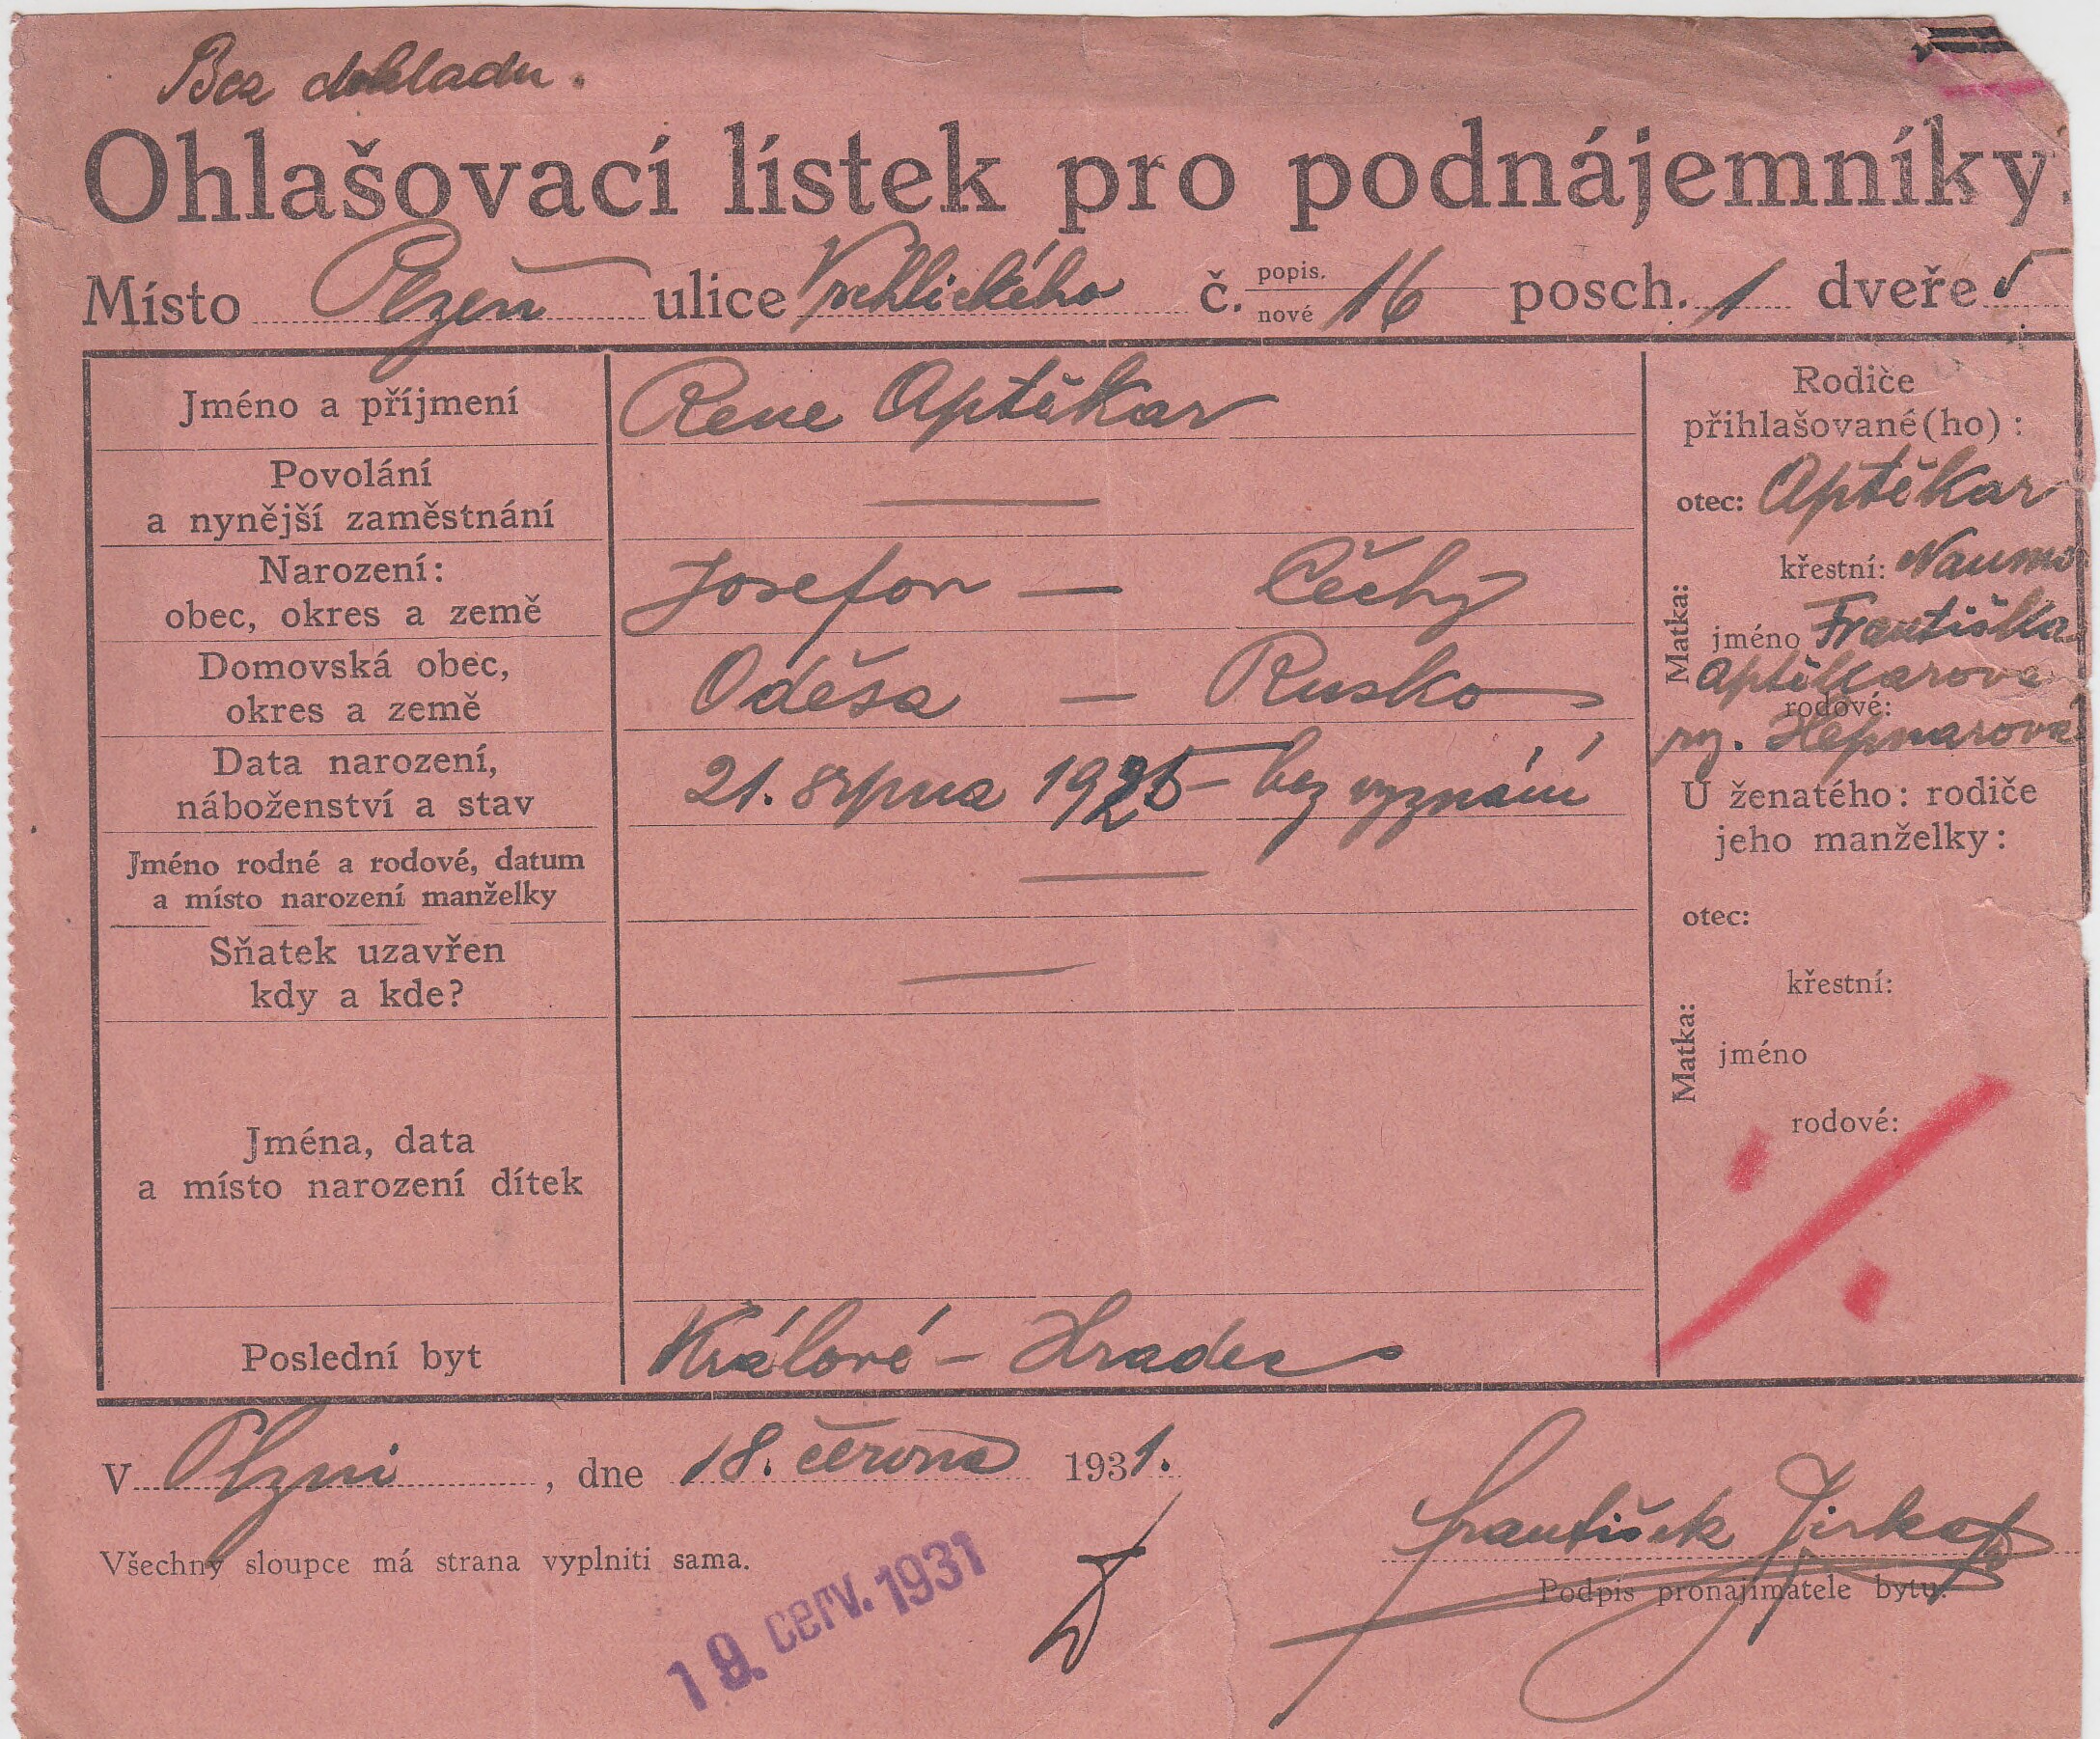 Bez dokladu.
Ohlašovací lístek pro podnájemníky.
Místo Plzeň ulice Vrchlického č. popis. nové 16 posch. 1 dveře 5
Jméno a příjmení Rene Aptěkar
Povolání
a nynější zaměstnání —
Narození:
obec, okres a země Josefov — Čechy
Domovská obec,
okres a země Oděsa — Rusko
Data narození,
náboženství a stav 21. srpna 1925 – bez vyznání
Jméno rodné a rodové, datum
a místo narození manželky —
Sňatek uzavřen
kdy a kde? —
Jména, data
a místo narození dítek
Poslední byt Králové – Hradec
Rodiče
přihlašované(ho):
otec: Aptěkar
křestní: Naum
Matka:
jméno Františka
Aptěkarova
rodové:
roz. Hepnarová
U ženatého: rodiče
jeho manželky:
otec:
křestní:
Matka:
jméno
rodové:
V Plzni, dne 18. června 1931.
František Jirka
Všechny sloupce má strana vyplniti sama.
Podpis pronajímatele bytu.
19. červ. 1931